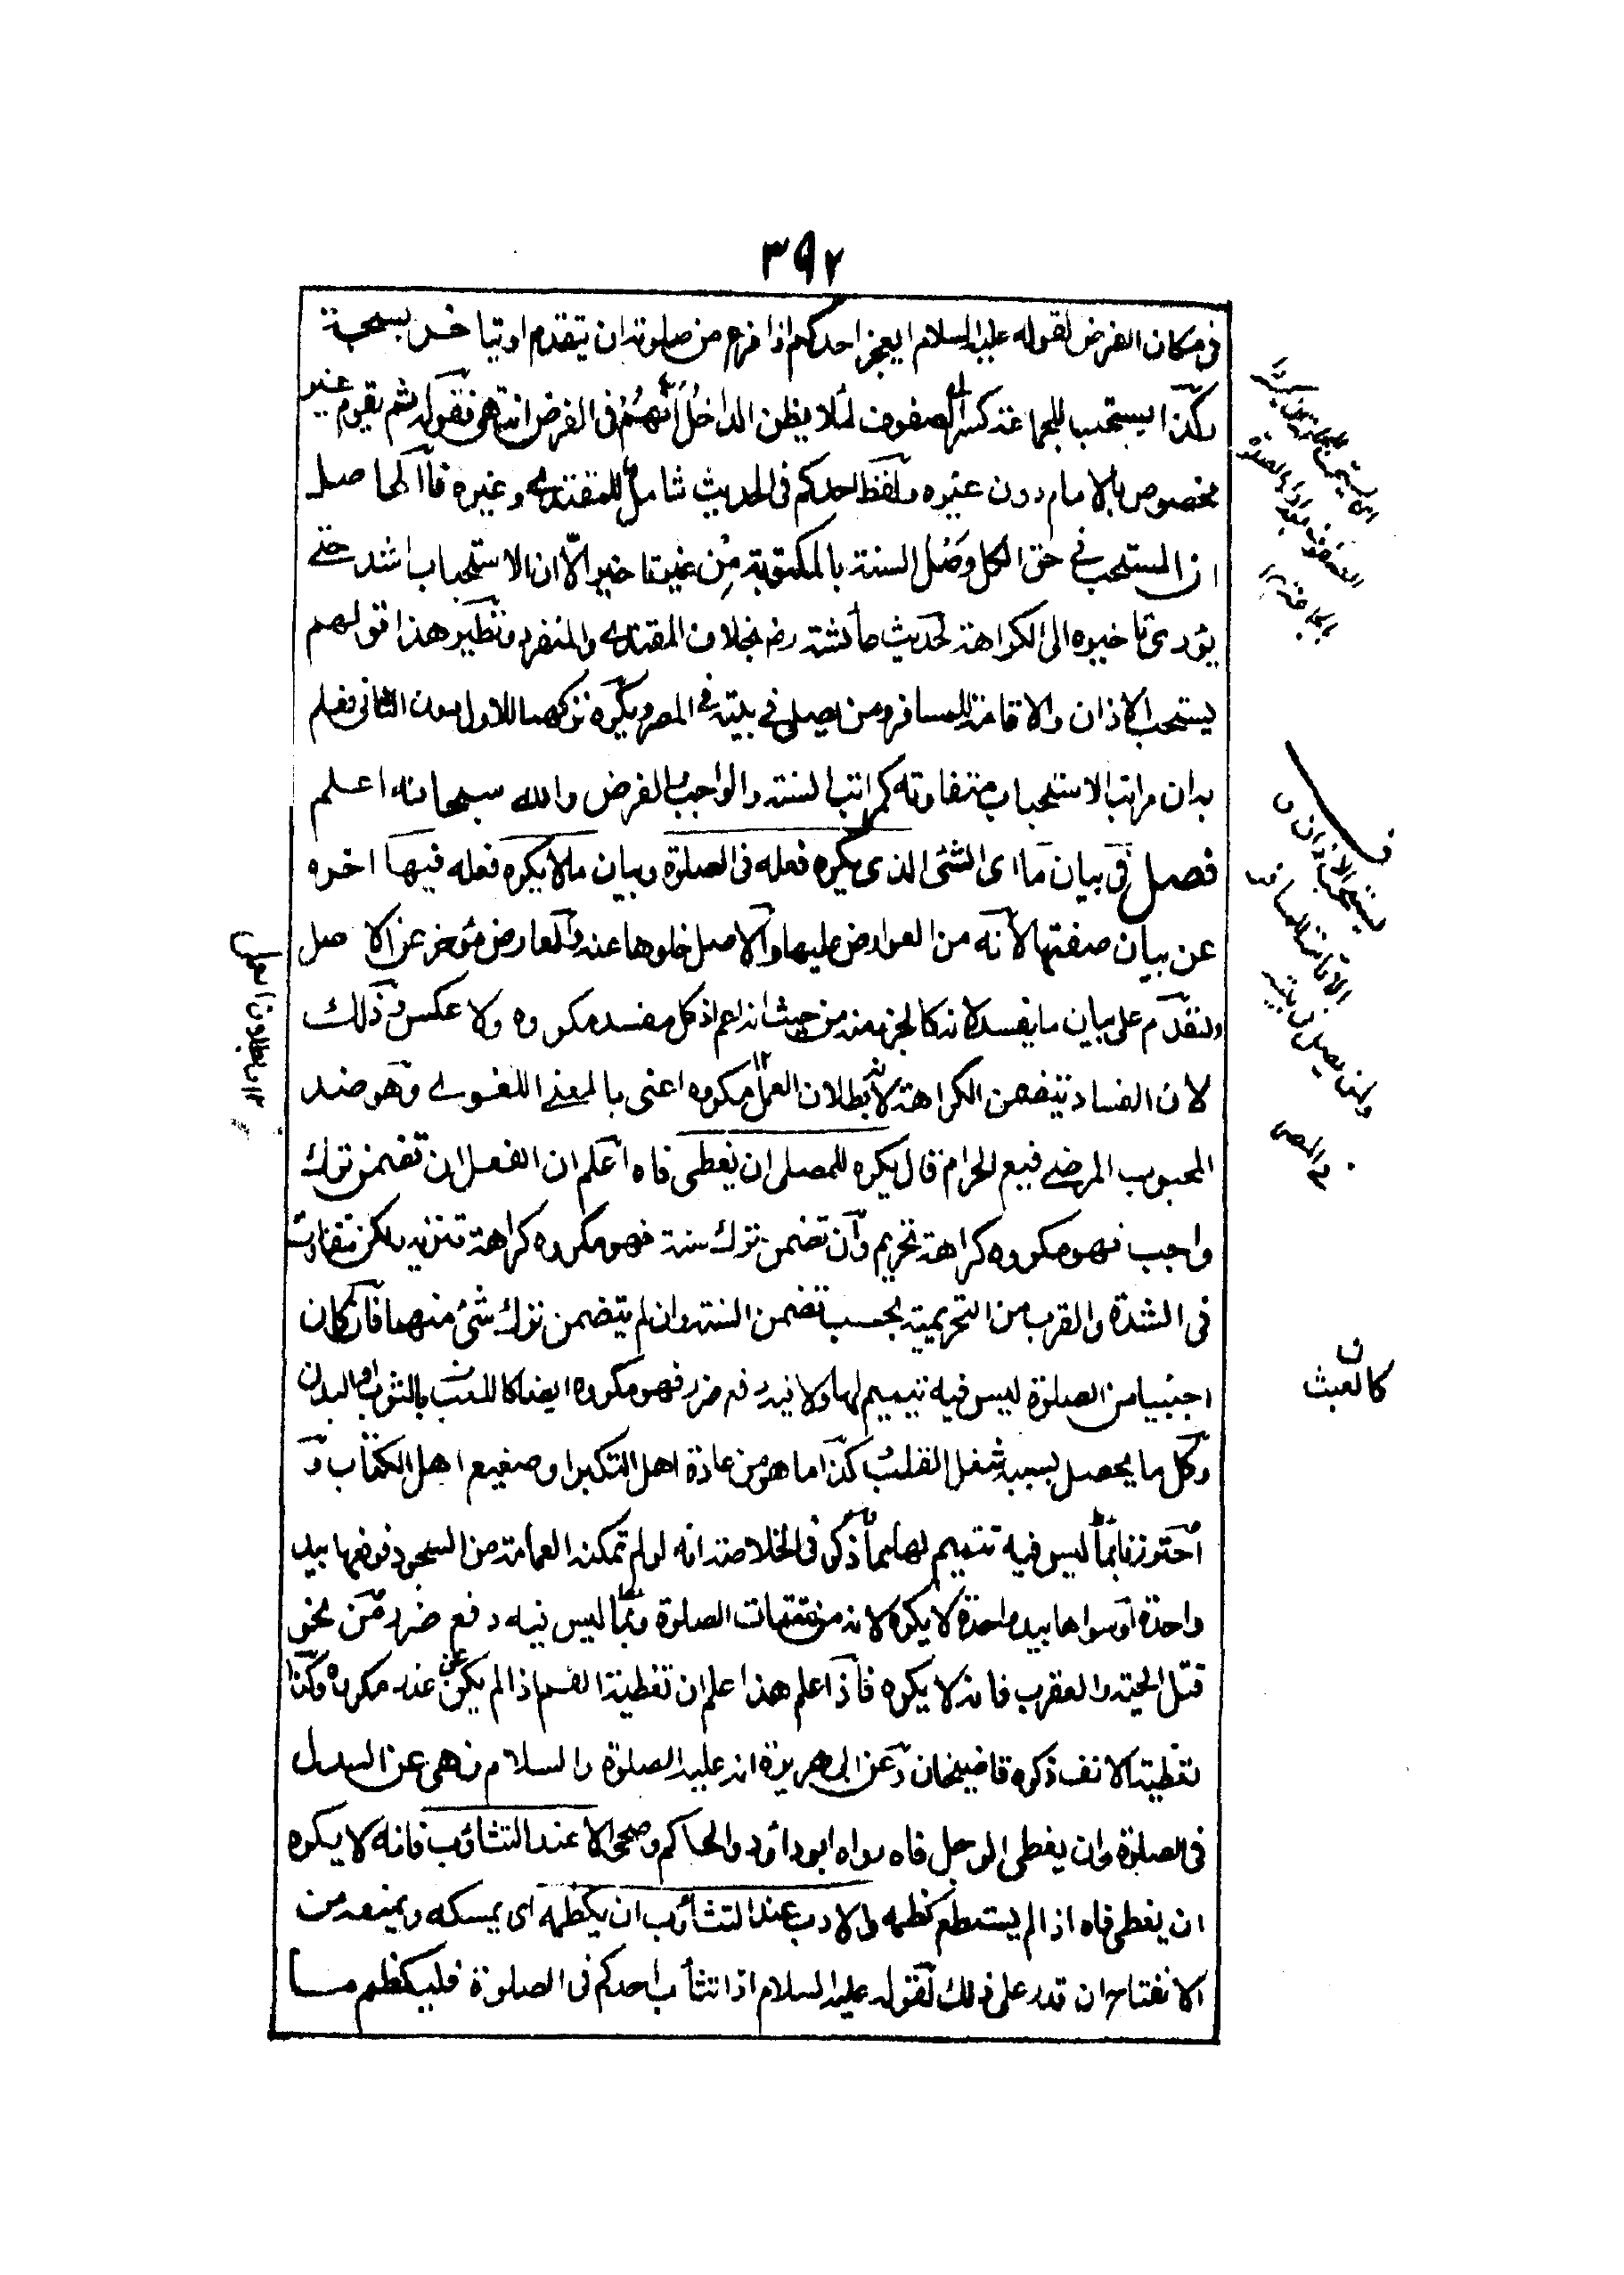 ٣٩٢
في مكان الفرض لقوله عليه السلام ايعجز احدكم اذا فرغ من صلوته ان يتقدم او يتاخر بسبحة
وكذا يستحب للجماعة كسر الصفوف لئلا يظن الداخل انهم في الفرض انتهى فقوله ثم يقوم غير
مخصوص بالامام دون غيره ولفظ احدكم في الحديث شامل للمقتدي وغيره فالحاصل
ان المستحب في حق الكل وصل السنة بالمكتوبة من غير تاخير الا ان الاستحباب اشد حتى
يؤدى تاخيره الى الكراهة لحديث عائشة رض بخلاف المقتدي والمنفرد ونظير هذا قولهم
يستحب الاذان والاقامة للمسافر ومن يصلي في بيته في المصر ويكره تركهما للاول دون الثاني فعلم
به ان مراتب الاستحباب متفاوتة كمراتب السنة والواجب والفرض والله سبحانه اعلم
فصل في بيان ما اى الشئ الذى يكره فعله في الصلوة وبيان ما لا يكره فعله فيها اخره
عن بيان صفتها لانه من العوارض عليها والاصل خلوها عنه والعارض مؤخر عن الاصل
وتقدم على بيان ما يفسد لانه كالجزء منه من حيث انه اعم اذ كل مفسد مكروه ولا عكس وذلك
لان الفساد يتضمن الكراهة لان بطلان العمل مكروه اعنى بالمعنى اللغوي وهو ضد
المحبوب المرضي فيعم الحرام قال يكره للمصلى ان يغطى فاه اعلم ان الفعل ان تضمن ترك
واجب فهو مكروه كراهة تحريم وان تضمن ترك سنة فهو مكروه كراهة تنزيه ولكن تتفاوت
في الشدة والقرب من التحريمية بحسب تضمن السنة وان لم يتضمن ترك شئ منهما فان كان
اجنبيا من الصلوة ليس فيه تتميم لها ولا فيه دفع ضرر فهو مكروه ايضا كالعبث بالثوب او البدن
وكل ما يحصل بسببه شغل القلب كذا ما هو من عادة اهل التكبر او صنيع اهل الكتاب و
احترزنا بما ليس فيه تتميم لها عما ذكر في الخلاصة انه لو لم تمكنه العمامة من السجود فرفعها بيد
واحدة او سواها بيده واحدة لا يكره لانه من تتمات الصلوة وبما ليس فيه دفع ضرر عن نحو
قتل الحية والعقرب فانه لا يكره فاذا علم هذا علم ان تغطية الفم اذا لم يكن عن عذر مكروه وكذا
تغطية الانف ذكره قاضيخان وعن ابى هريرة انه عليه الصلوة والسلام نهى عن السدل
في الصلوة وان يغطى الرجل فاه رواه ابو داؤد والحاكم وصححه الا عند التثاؤب فانه لا يكره
ان يغطى فاه اذا لم يستطع كظمه والادب عند التثاؤب ان يكظمه اى يمسكه ويمنعه من
الانفتاح ان قدر على ذلك لقوله عليه السلام اذا تثأب احدكم في الصلوة فليكظم ما
يستحب الاذان و
الاقامة للمسافر
ولمن يصلي في بيته
في المصر
كالعبث